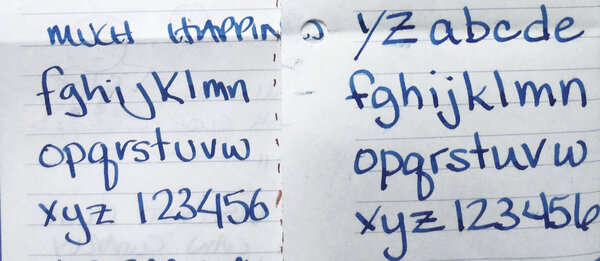 MUCH HAPPIN
fghijklmn
opqrstuvw
xyz 123456
YZ abcde
fghijklmn
opqrstuvw
xyz 123456